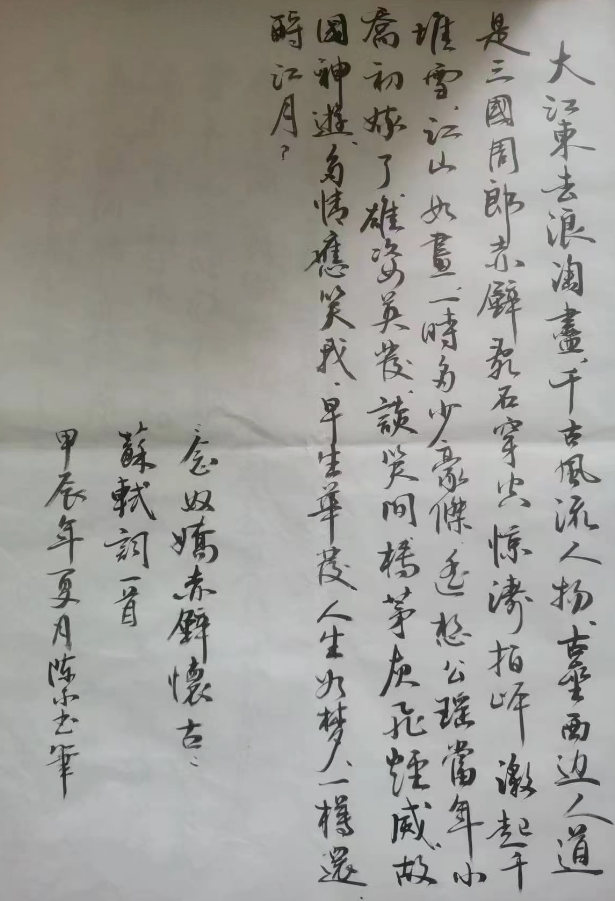 大江東去浪淘盡、千古風流人物、古壘西边人道
是三國周郎赤壁乱石穿空惊濤拍岸激起千
堆雪、江山如畫、一時多少豪傑遥想公瑾當年小
喬初嫁了、雄姿英發、談笑间檣茅灰飛煙滅、故
國神遊、多情應笑我、早生華發人生如梦、一樽還
酹江月？
念奴嬌赤壁懷古
蘇軾詞一首
甲辰年夏月陈筆